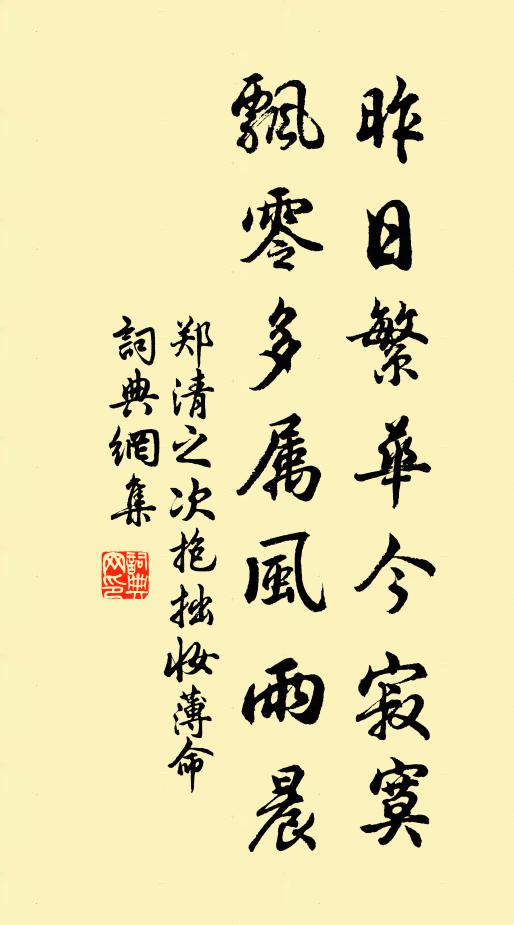 昨日繁華今寂寞
飄零多属風雨晨
郑清之次抱拙妆薄命
詞典網集
詞典网印